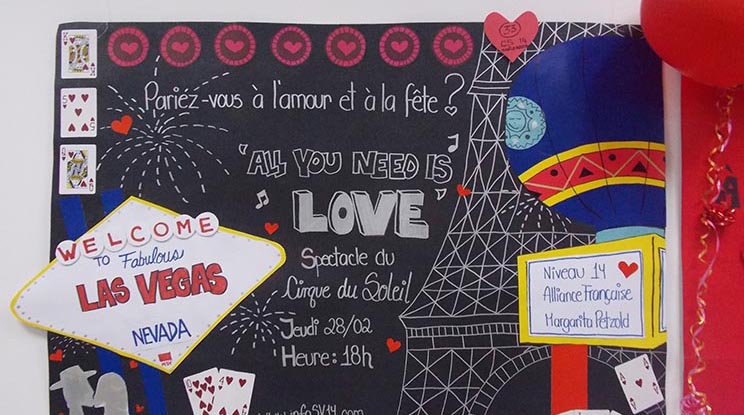 33
Pariez-vous à l'amour et à la fête?
'ALL YOU NEED IS
LOVE'
Spectacle du
Cirque du Soleil
Jeudi 28/02
Heure: 18h
WELCOME
TO Fabulous
LAS VEGAS
NEVADA
Niveau 14
Alliance Française
Margarita Petzold
À